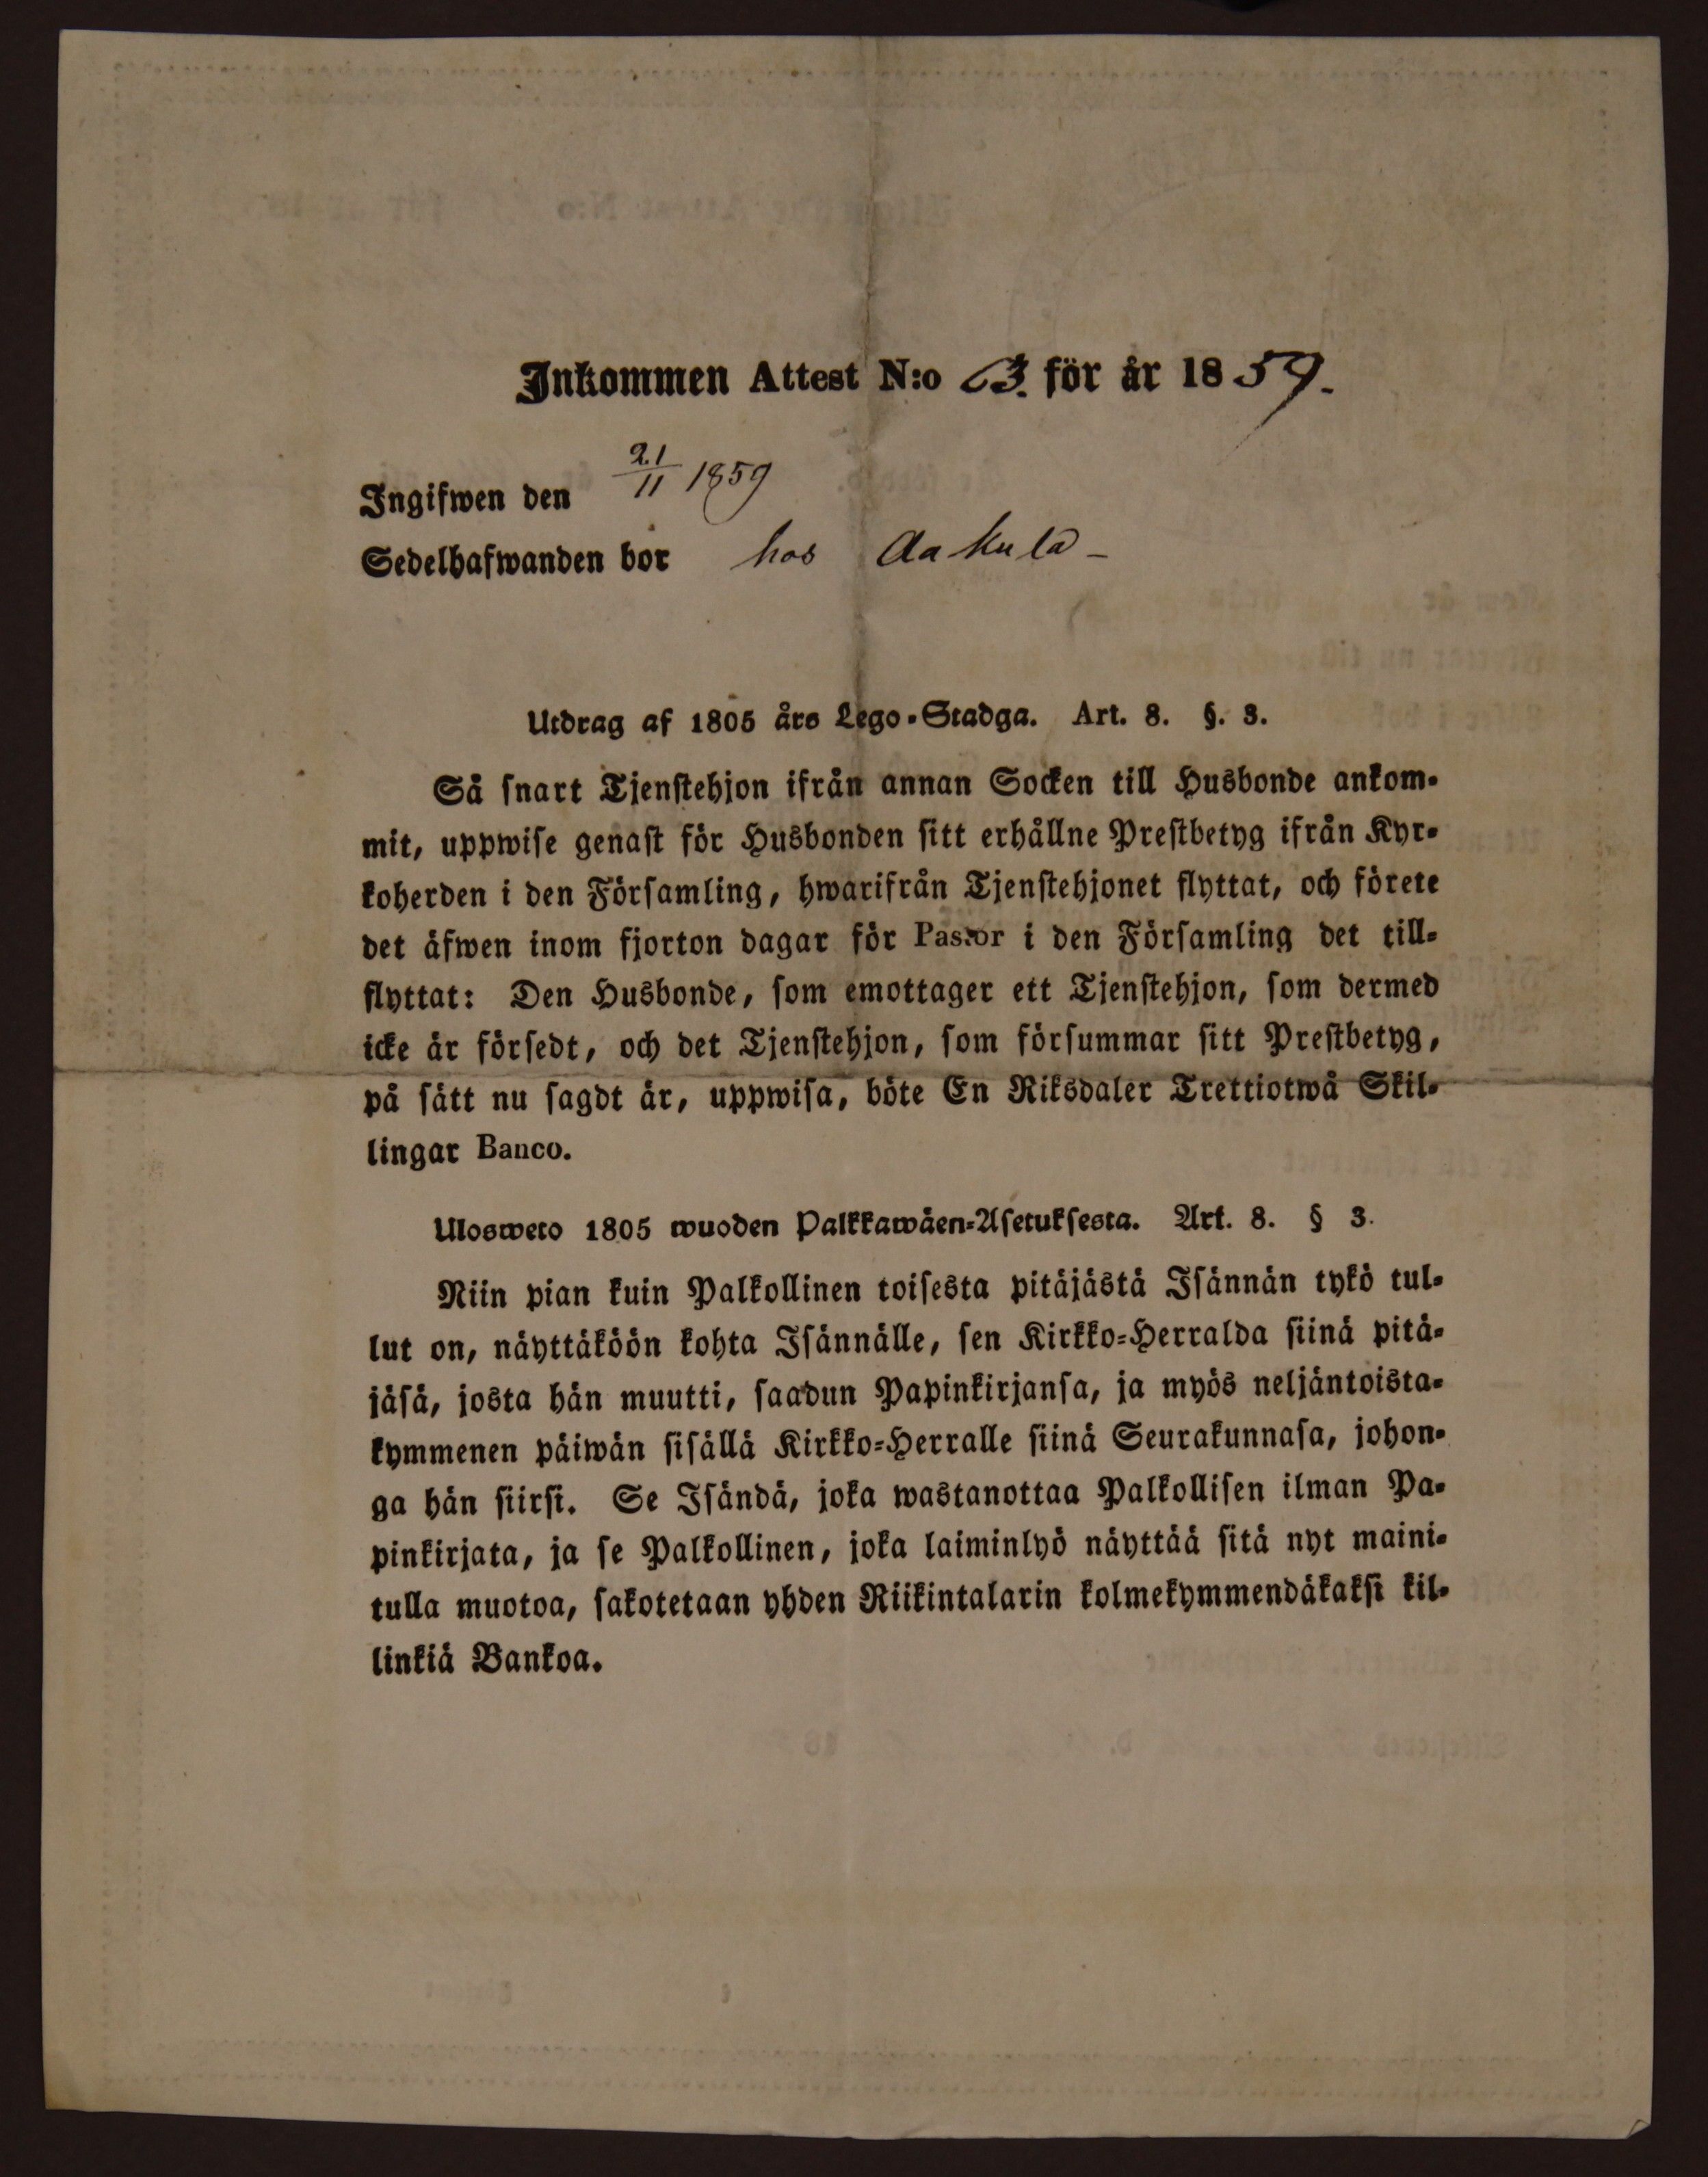 Inkommen Attest N:o 63. för år 1859.
Ingifwen den 21/11 1859
Sedelhafwanden bor hos Aakula -
Utdrag af 1805 års Lego-Stadga. Art. 8. §. 3.
Så snart Tjenstehjon ifrån annan Socken till Husbonde ankom-
mit, uppwise genast för Husbonden sitt erhållne Prestbetyg ifrån Kyr-
koherden i den Församling, hwarifrån Tjenstehjonet flyttat, och förete
det äfwen inom fjorton dagar för Pastor i den Församling det till-
flyttat: Den Husbonde, som emottager ett Tjenstehjon, som dermed
icke är försedt, och det Tjenstehjon, som försummar sitt Prestbetyg,
på sätt nu sagdt är, uppwisa, böte En Riksdaler Trettiotwå Skil-
lingar Banco.
Ulosweto 1805 wuoden Palkkawäen-Asetuksesta. Art. 8. § 3.
Niin pian kuin Palkollinen toisesta pitäjästä Isännän tykö tul-
lut on, näyttäköön kohta Isännälle, sen Kirkko-Herralda siinä pitä-
jäsä, josta hän muutti, saadun Papinkirjansa, ja myös neljäntoista-
kymmenen päiwän sisällä Kirkko-Herralle siinä Seurakunnasa, johon-
ga hän siirsi. Se Isändä, joka wastanottaa Palkollisen ilman Pa-
pinkirjata, ja se Palkollinen, joka laiminlyö näyttää sitä nyt maini-
tulla muotoa, sakotetaan yhden Riikintalarin kolmekymmendäkaksi kil-
linkiä Bankoa.